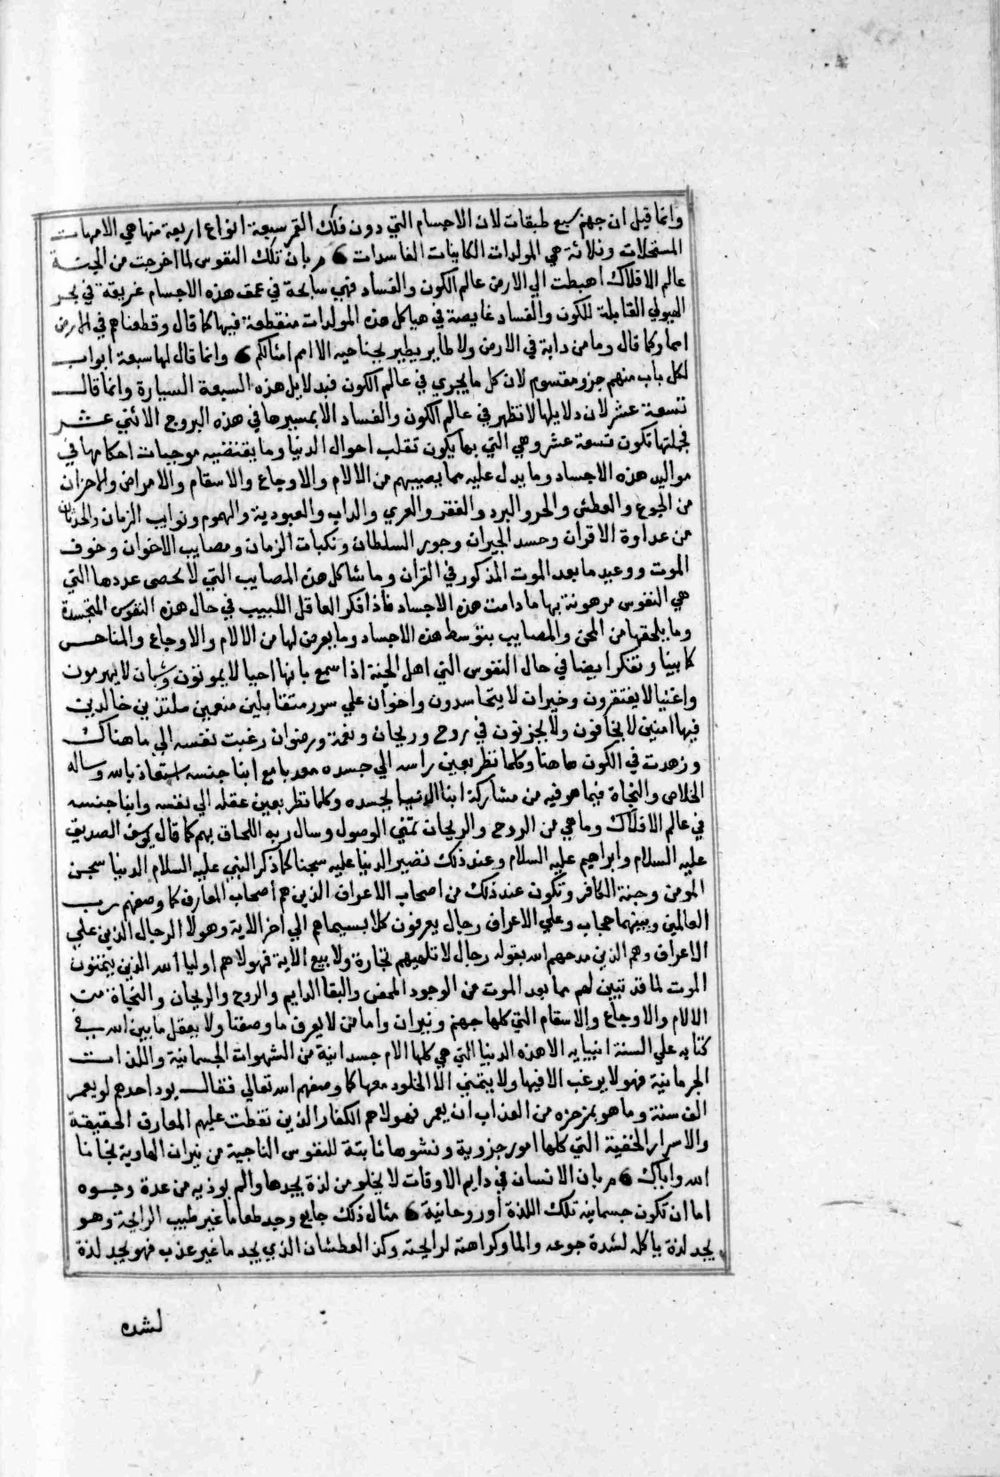 وانما قيل ان جهنم سبع طبقات لان الاجسام التي دون فلك القمر سبعة انواع اربعة منها هي الامهات
المستحيلات وثلاثة هي المولدات الكاينات الفاسدات ٥ مر بان تلك النفوس لما اخرجت من الجنة
عالم الافلاك اهبطت الي الارض عالم الكون والفساد فهي سابحة في عمق هذه الاجسام غريقة في بحر
الهيولي القابلة للكون والفساد غايصة في هياكل هذه المولدات منقطعة فيها كما قال وقطعناهم في الارض
امما وكما قال وما من دابة في الارض ولا طاير يطير بجناحيه الا امم امثالكم ٥ وانما قال لها سبعة ابواب
لكل باب منهم جزو مقسوم لان كل ما يجري في عالم الكون فبدلايل هذه السبعة السيارة وانما قال
تسعة عشر لان دلايلها لا تظهر في عالم الكون والفساد الا بمسيرها في هذه البروج الاثني عشر
فجملتها تكون تسعة عشر وهي التي بها يكون تقلب احوال الدنيا وما يقتضيه موجبات احكامها في
مواليد هذه الاجساد وما يدل عليه مما يصيبهم من الالام والاوجاع والاسقام والامراض والاحزان
من الجوع والعطش والحر والبرد والفقر والعري والداب والعبودية والهموم ونوايب الزمان والحدثان
من عداوة الاقران وحسد الجيران وجور السلطان ونكبات الزمان ومصايب الاخوان وخوف
الموت ووعيد ما بعد الموت المذكور في القران وما شاكل هذه المصايب التي لا يحصى عددها التي
هي النفوس مرهونة بها ما دامت هذه الاجساد فاذا فكر العاقل اللبيب في حال هذه النفوس المتجسدة
وما يلحقها من المحن والمصايب بتوسط هذه الاجساد وما يعرض لها من الالام والاوجاع والمناحس
كما بينا وتفكر ايضا في حال النفوس التي اهل الجنة اذا سمع بانها احيا لا يموتون وشبان لا يهرمون
واغنيا لا يفتقرون وجيران لا يتحاسدون واخوان علي سرر متقابلين منعمين ملتذين خالدين
فيها امنين لا يخافون ولا يحزنون في روح وريحان ونعمة ورضوان رغبت نفسه الي ما هناك
وزهدت في الكون هاهنا وكلما نظر بعين راسه الي جسده معدبا مع ابنا جنسه استعاذ بالله وساله
الخلاص والنجاة فيما هو فيه من مشاركة ابنا الدنيا بجسده وكلما نظر بعين عقله الي نفسه وابنا جنسه
في عالم الافلاك وما هي من الروح والريحان تمني الوصول وسال ربه اللحاق بهم كما قال يوسف الصديق
عليه السلام وابراهيم عليه السلام وعند ذلك تصير الدنيا عليه سجنا كما ذكر النبي عليه السلام الدنيا سجن
المومن وجنة الكافر وتكون عند ذلك من اصحاب الاعراف الذين هم اصحاب المعارف كما وصفهم رب
العالمين وبينهما حجاب وعلي الاعراف رجال يعرفون كلا بسيماهم الي اخر الاية وهولا الرجال الذين علي
الاعراف وهم الذين مدحهم الله بقوله رجال لا تلهيهم تجارة ولا بيع الاية فهولا هم اوليا الله الذين يتمنون
الموت لما قد تبين لهم مما بعد الموت من الوجود المحض والبقا الدايم والروح والريحان والنجاة من
الالام والاوجاع والاسقام التي كلها جهنم ونيران واما من لا يعرف ما وصفنا ولا يعقل ما بين الله في
كتابه علي السنة انبيايه الا هذه الدنيا التي هي كلها الام جسدانية من الشهوات الجسمانية واللذات
الجرمانية فهولا يرغب الا فيها ولا يتمني الا الخلود معها كما وصفهم الله تعالي فقال يود احدهم لو يعمر
الف سنة وما هو بمزحزحه من العذاب ان يعمر فهولا هم الكفار الذين تغطت عليهم المعارف الحقيقة
والاسرار الخفية التي كلها امور جزوية ونشوها ثابتة للنفوس الناجية من نيران الهاوية نجانا
الله واياك ٥ مر بان الانسان في دايم الاوقات لا يخلو من لذة يجدها والم يوذيه من عدة وجوه
اما ان تكون جسمانية تلك اللذة او روحانية ٥ مثال ذلك جايع وجد طعاما غير طيب الرايحة وهو
يجد لذة ياكله لشدة جوعه والما وكراهة لرايحته وكذا العطشان الذي يجد ما غير عذب فهو يجد لذة
لشده